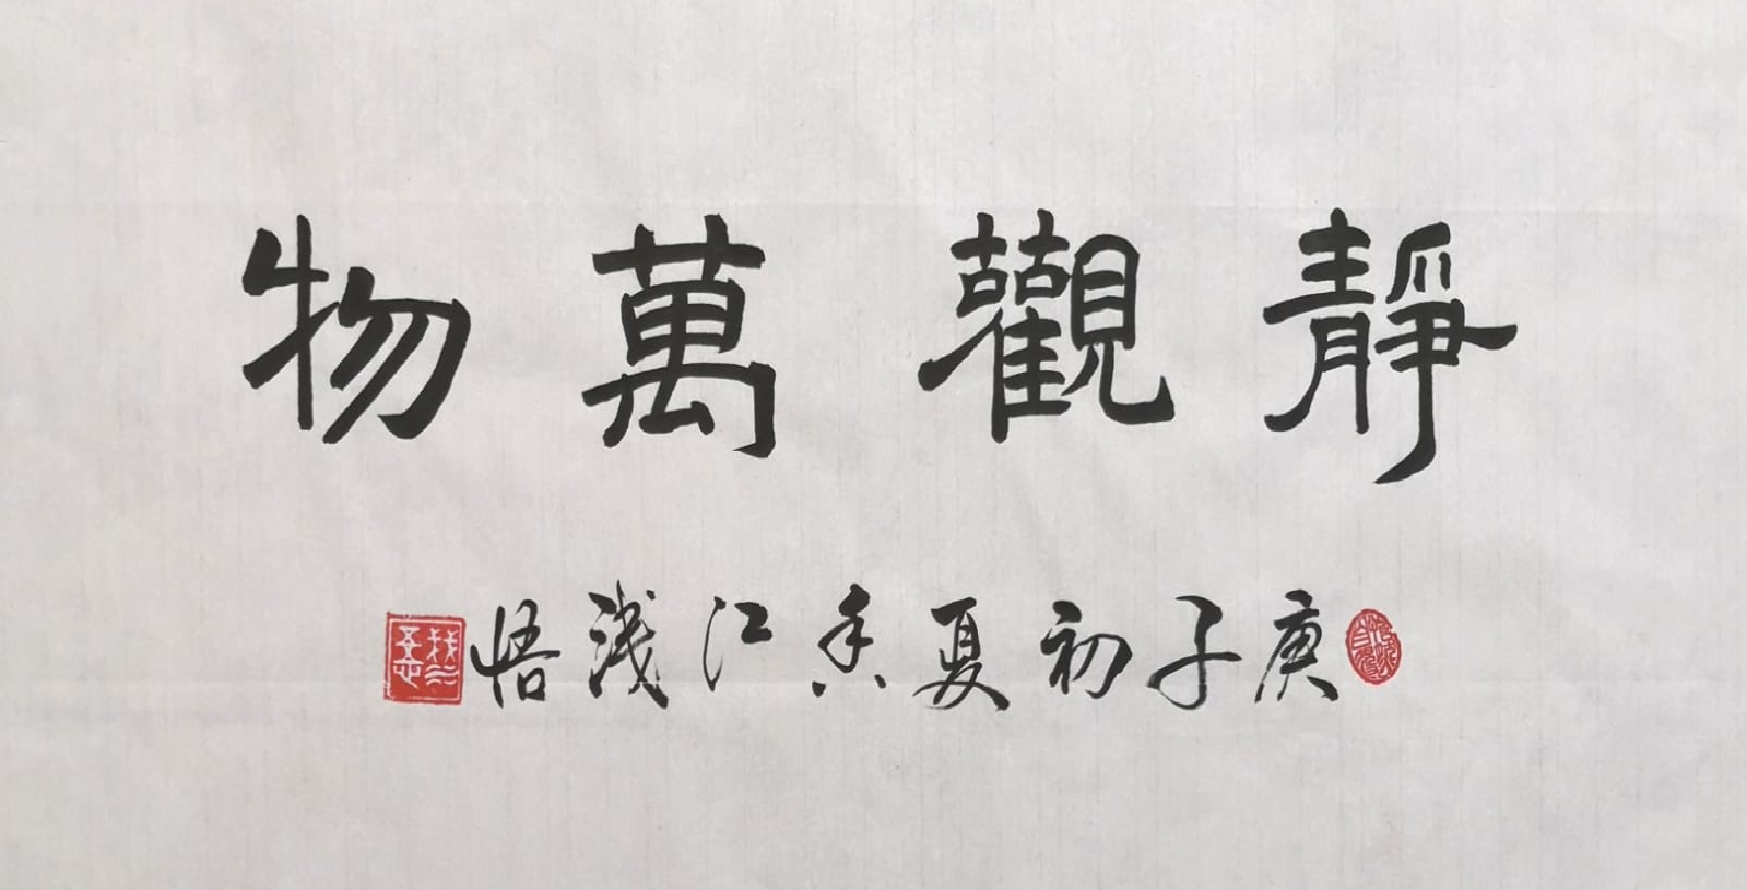 靜觀萬物
庚子初夏香江淺悟